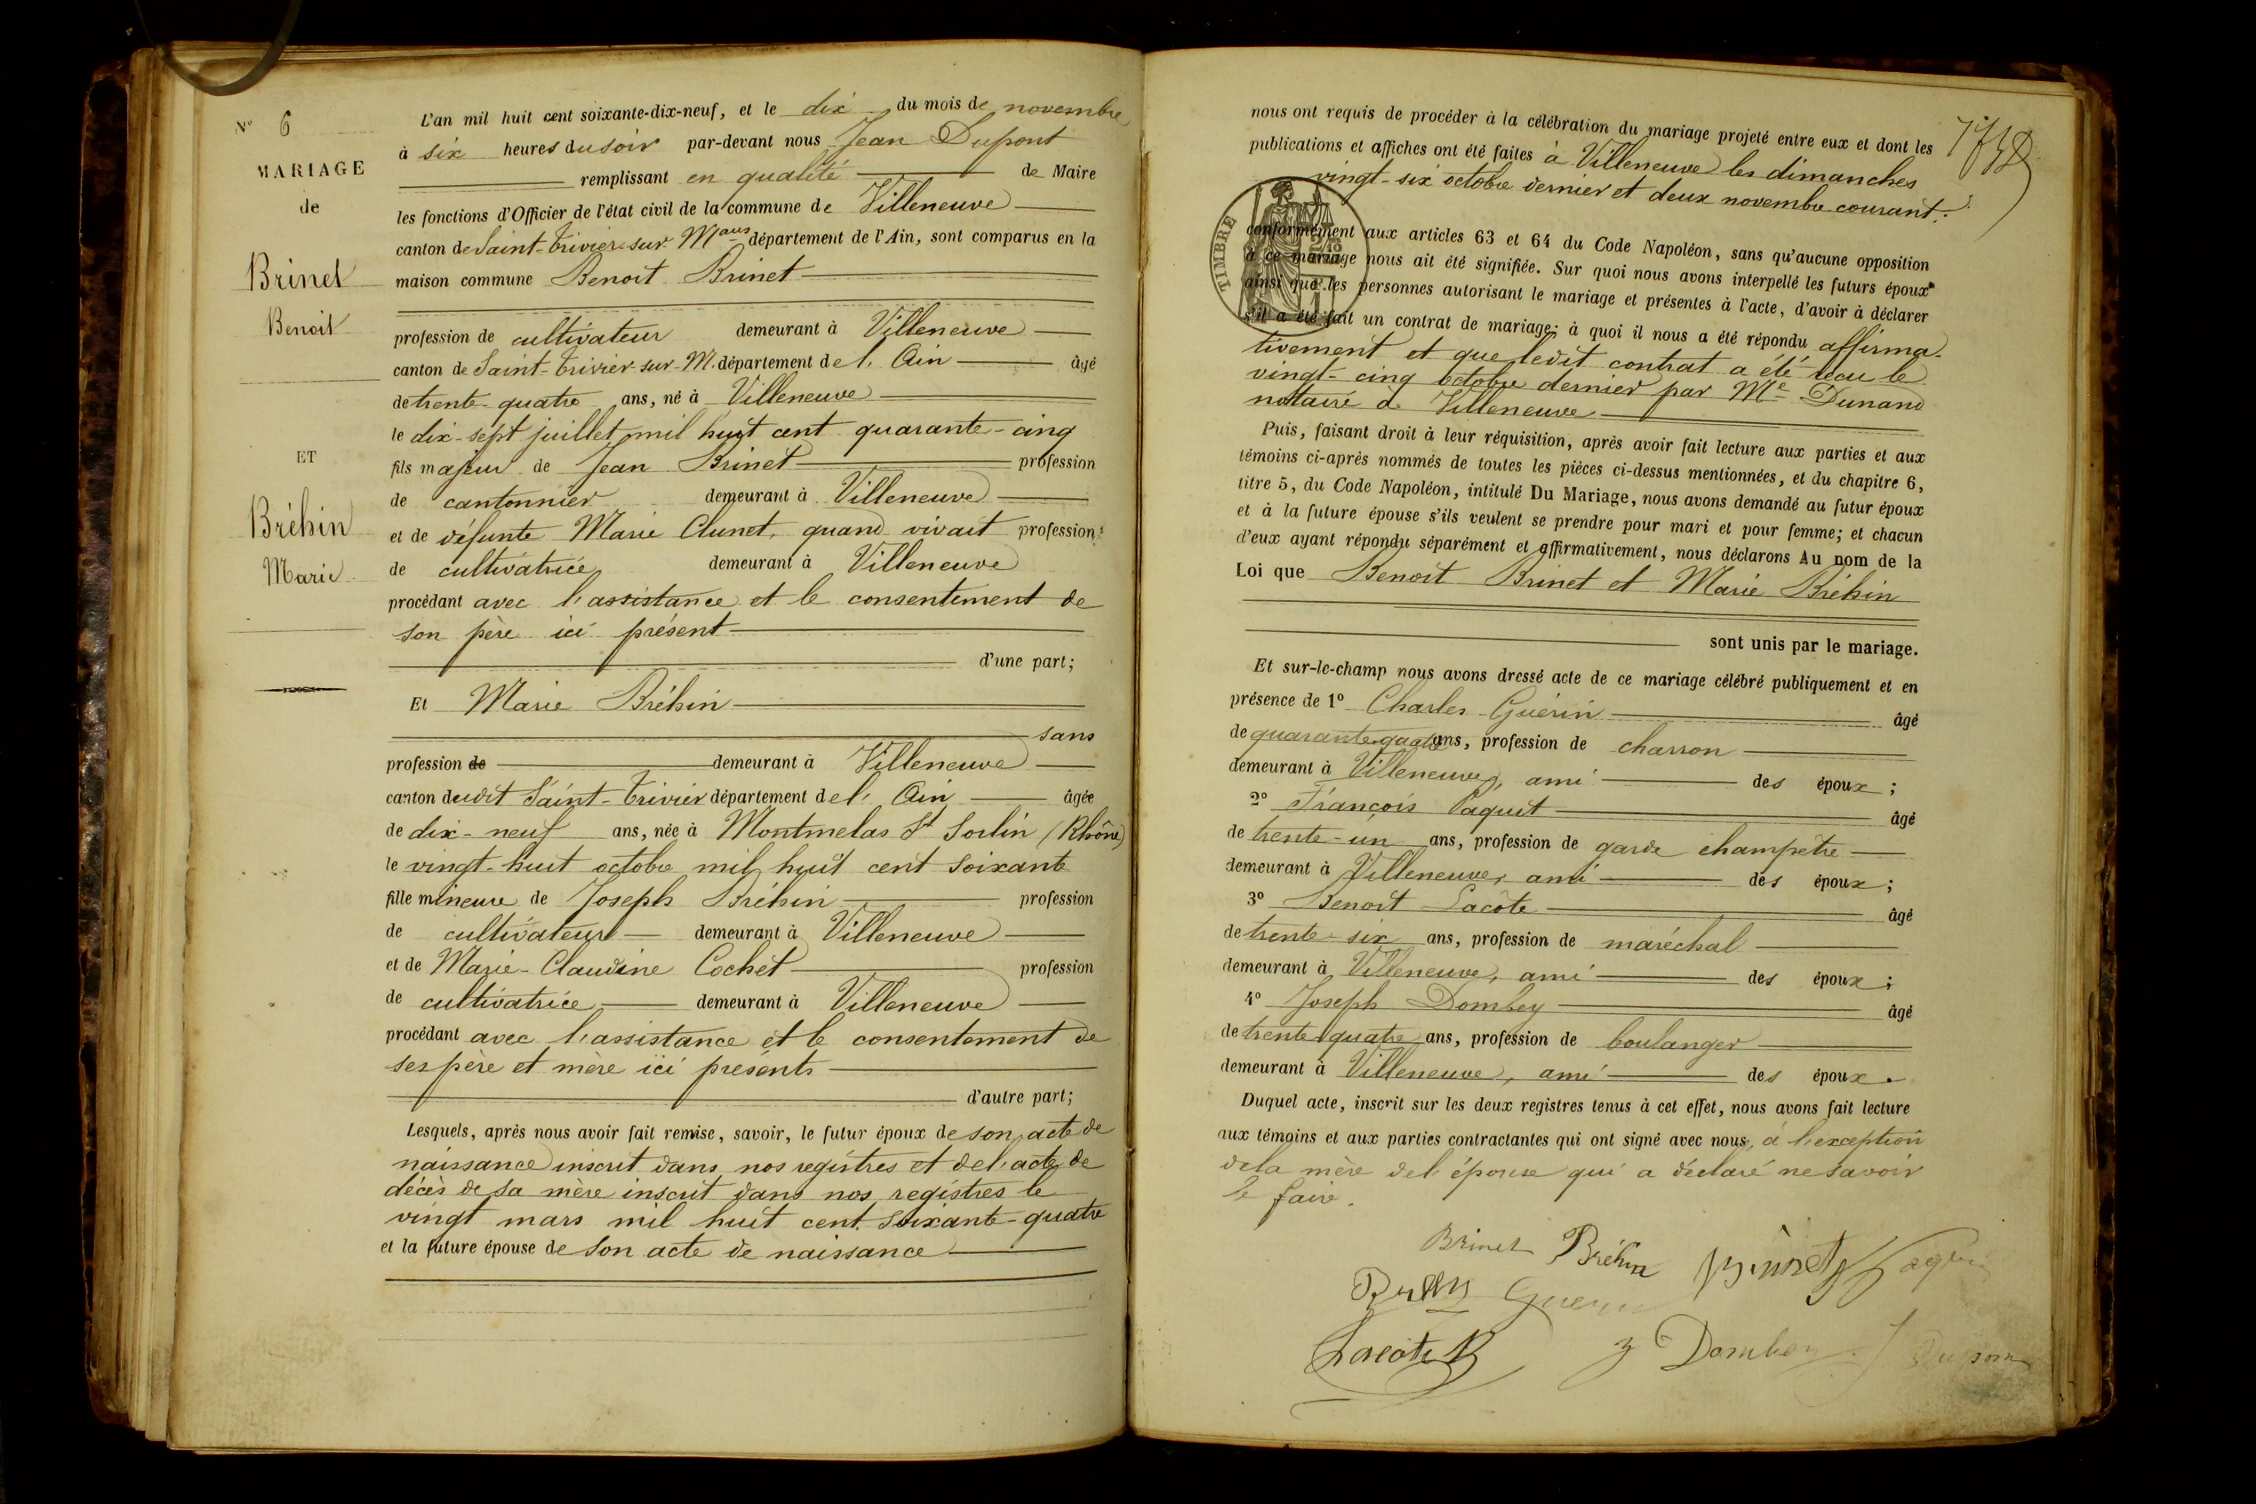 Nº 6
MARIAGE
de
Brinet
Benoit
ET
Bréhin
Marie
L'an mil huit cent soixante-dix-neuf, et le dix du mois de novembre
à six heures du soir par-devant nous Jean Dupont
remplissant en qualité de Maire
les fonctions d'Officier de l'état civil de la commune de Villeneuve
canton de Saint-Trivier-sur-Mans département de l'Ain, sont comparus en la
maison commune Benoit Brinet
profession de cultivateur demeurant à Villeneuve
canton de Saint-Trivier-sur-M. département de l'Ain âgé
de trente-quatre ans, né à Villeneuve
le dix-sept juillet mil huit cent quarante-cinq
fils majeur de Jean Brinet profession
de cantonnier demeurant à Villeneuve
et de défunte Marie Clunet, quand vivait profession
de cultivatrice demeurant à Villeneuve
procédant avec l'assistance et le consentement de
son père ici présent
d'une part;
Et Marie Bréhin
sans
profession de demeurant à Villeneuve
canton dudit Saint-Trivier département de l'Ain âgée
de dix-neuf ans, née à Montmelas St Sorlin (Rhône)
le vingt-huit octobre mil huit cent soixante
fille mineure de Joseph Bréhin profession
de cultivateur demeurant à Villeneuve
et de Marie-Claudine Cochet profession
de cultivatrice demeurant à Villeneuve
procédant avec l'assistance et le consentement de
ses père et mère ici présents
d'autre part;
Lesquels, après nous avoir fait remise, savoir, le futur époux de son acte de
naissance inscrit dans nos registres et de l'acte de
décès de sa mère inscrit dans nos registres le
vingt mars mil huit cent soixante-quatre
et la future épouse de son acte de naissance
nous ont requis de procéder à la célébration du mariage projeté entre eux et dont les
publications et affiches ont été faites à Villeneuve les dimanches
vingt-six octobre dernier et deux novembre courant.
TIMBRE
conformément aux articles 63 et 64 du Code Napoléon, sans qu'aucune opposition
à ce mariage nous ait été signifiée. Sur quoi nous avons interpellé les futurs époux
ainsi que les personnes autorisant le mariage et présentes à l'acte, d'avoir à déclarer
s'il a été fait un contrat de mariage; à quoi il nous a été répondu affirma-
tivement et que ledit contrat a été reçu le
vingt-cinq octobre dernier par Me Dunand
notaire à Villeneuve
Puis, faisant droit à leur réquisition, après avoir fait lecture aux parties et aux
témoins ci-après nommés de toutes les pièces ci-dessus mentionnées, et du chapitre 6,
titre 5, du Code Napoléon, intitulé Du Mariage, nous avons demandé au futur époux
et à la future épouse s'ils veulent se prendre pour mari et pour femme; et chacun
d'eux ayant répondu séparément et affirmativement, nous déclarons Au nom de la
Loi que Benoit Brinet et Marie Bréhin
sont unis par le mariage.
Et sur-le-champ nous avons dressé acte de ce mariage célébré publiquement et en
présence de 1º Charles Guérin âgé
de quarante-quatre ans, profession de charron
demeurant à Villeneuve, ami des époux;
2º François Paquit âgé
de trente-un ans, profession de garde champêtre
demeurant à Villeneuve, ami des époux;
3º Benoit Lacôte âgé
de trente-six ans, profession de maréchal
demeurant à Villeneuve, ami des époux;
4º Joseph Dombey âgé
de trente-quatre ans, profession de boulanger
demeurant à Villeneuve, ami des époux.
Duquel acte, inscrit sur les deux registres tenus à cet effet, nous avons fait lecture
aux témoins et aux parties contractantes qui ont signé avec nous, à l'exception
de la mère de l'épouse qui a déclaré ne savoir
le faire.
Brinet Bréhin
Guerin
Lacote B
Dombey